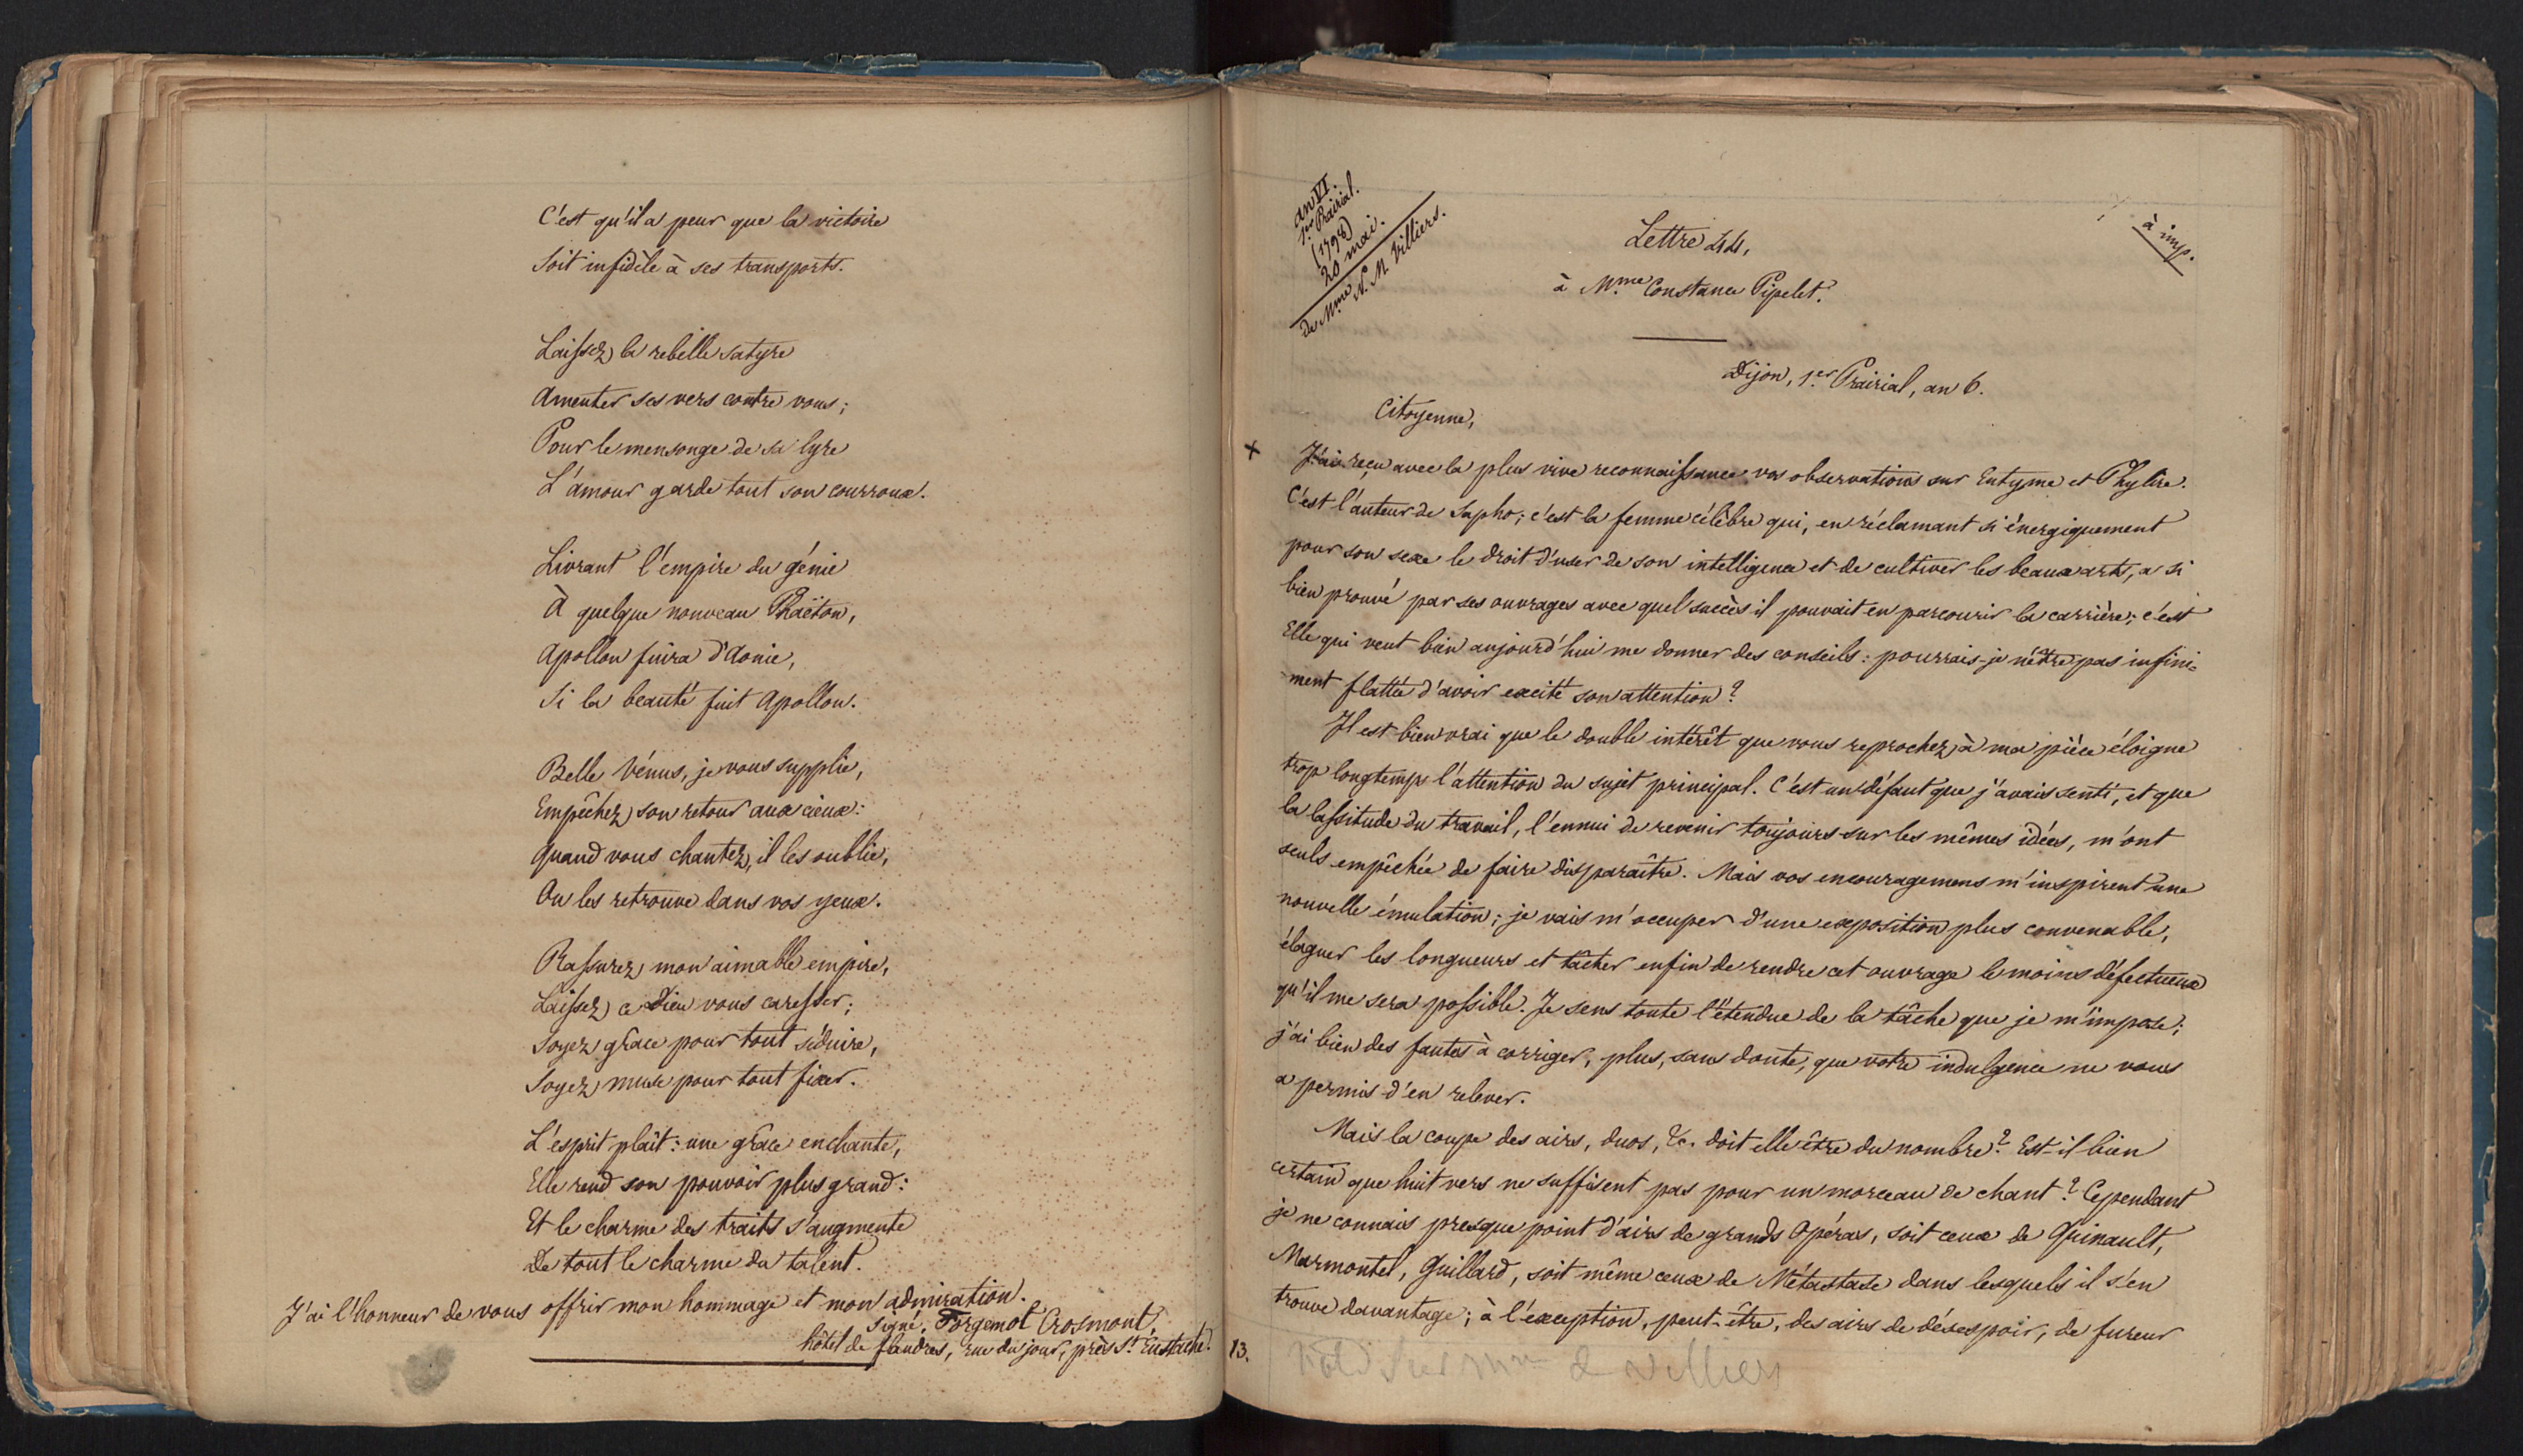 C'est qu'il a peur que la victoire
Soit infidèle à ses transports.
Laissez la rebelle satyre
Ameuter ses vers contre vous;
Pour le mensonge de sa lyre
L'amour garde tout son courroux.
Livrant l'empire du génie
À quelque nouveau Phaëton,
Apollon fuira d'Aonie,
Si la beauté fuit Apollon.
Belle Vénus, je vous supplie,
Empêchez son retour aux cieux:
Quand vous chantez, il les oublie,
On les retrouve dans vos yeux.
Rassurez mon aimable empire,
Laissez ce Dieu vous caresser;
Soyez grâce pour tout séduire,
Soyez muse pour tout fixer.
L'esprit plaît: une grâce enchante,
Elle rend son pouvoir plus grand:
Et le charme des traits s'augmente
De tout le charme du talent.
J'ai l'honneur de vous offrir mon hommage et mon admiration.
Signé, Forgemol Crosmont,
hôtel de flandres, rue du jour, près St. Eustache.
an VI.
1er Prairial.
(1798)
20 mai.
de Mme N. M. Villiers.
à imp.
Lettre 44,
à Mme Constance Pipelet.
Dijon, 1er Prairial, an 6.
Citoyenne,
x J'ai reçu avec la plus vive reconnaissance vos observations sur Eutyme et Phylire.
C'est l'auteur de Sapho; c'est la femme célèbre qui, en réclamant si énergiquement
pour son sexe le droit d'user de son intelligence et de cultiver les beaux arts, a si
bien prouvé par ses ouvrages avec quel succès il pouvait en parcourir la carrière; c'est
Elle qui veut bien aujourd'hui me donner des conseils: pourrais-je n'être pas infini=
ment flattée d'avoir excité son attention?
Il est bien vrai que le double intérêt que vous reprochez à ma pièce éloigne
trop longtemps l'attention du sujet principal. C'est un défaut que j'avais senti, et que
la lassitude du travail, l'ennui de revenir toujours sur les mêmes idées, m'ont
seuls empêchée de faire disparaître. Mais vos encouragemens m'inspirent une
nouvelle émulation; je vais m'occuper d'une exposition plus convenable,
élaguer les longueurs et tâcher enfin de rendre cet ouvrage le moins défectueux
qu'il me sera possible. Je sens toute l'étendue de la tâche que je m'impose;
j'ai bien des fautes à corriger, plus, sans doute, que votre indulgence ne vous
a permis d'en relever.
Mais la coupe des airs, duos, &c. doit elle être du nombre? Est-il bien
certain que huit vers ne suffisent pas pour un morceau de chant? Cependant
je ne connais presque point d'airs de grands Opéras, soit ceux de Quinault,
Marmontel, Guillard, soit même ceux de Métastase dans lesquels il s'en
trouve davantage; à l'exception, peut-être, des airs de désespoir, de fureur
13.
sur Mme de Villiers